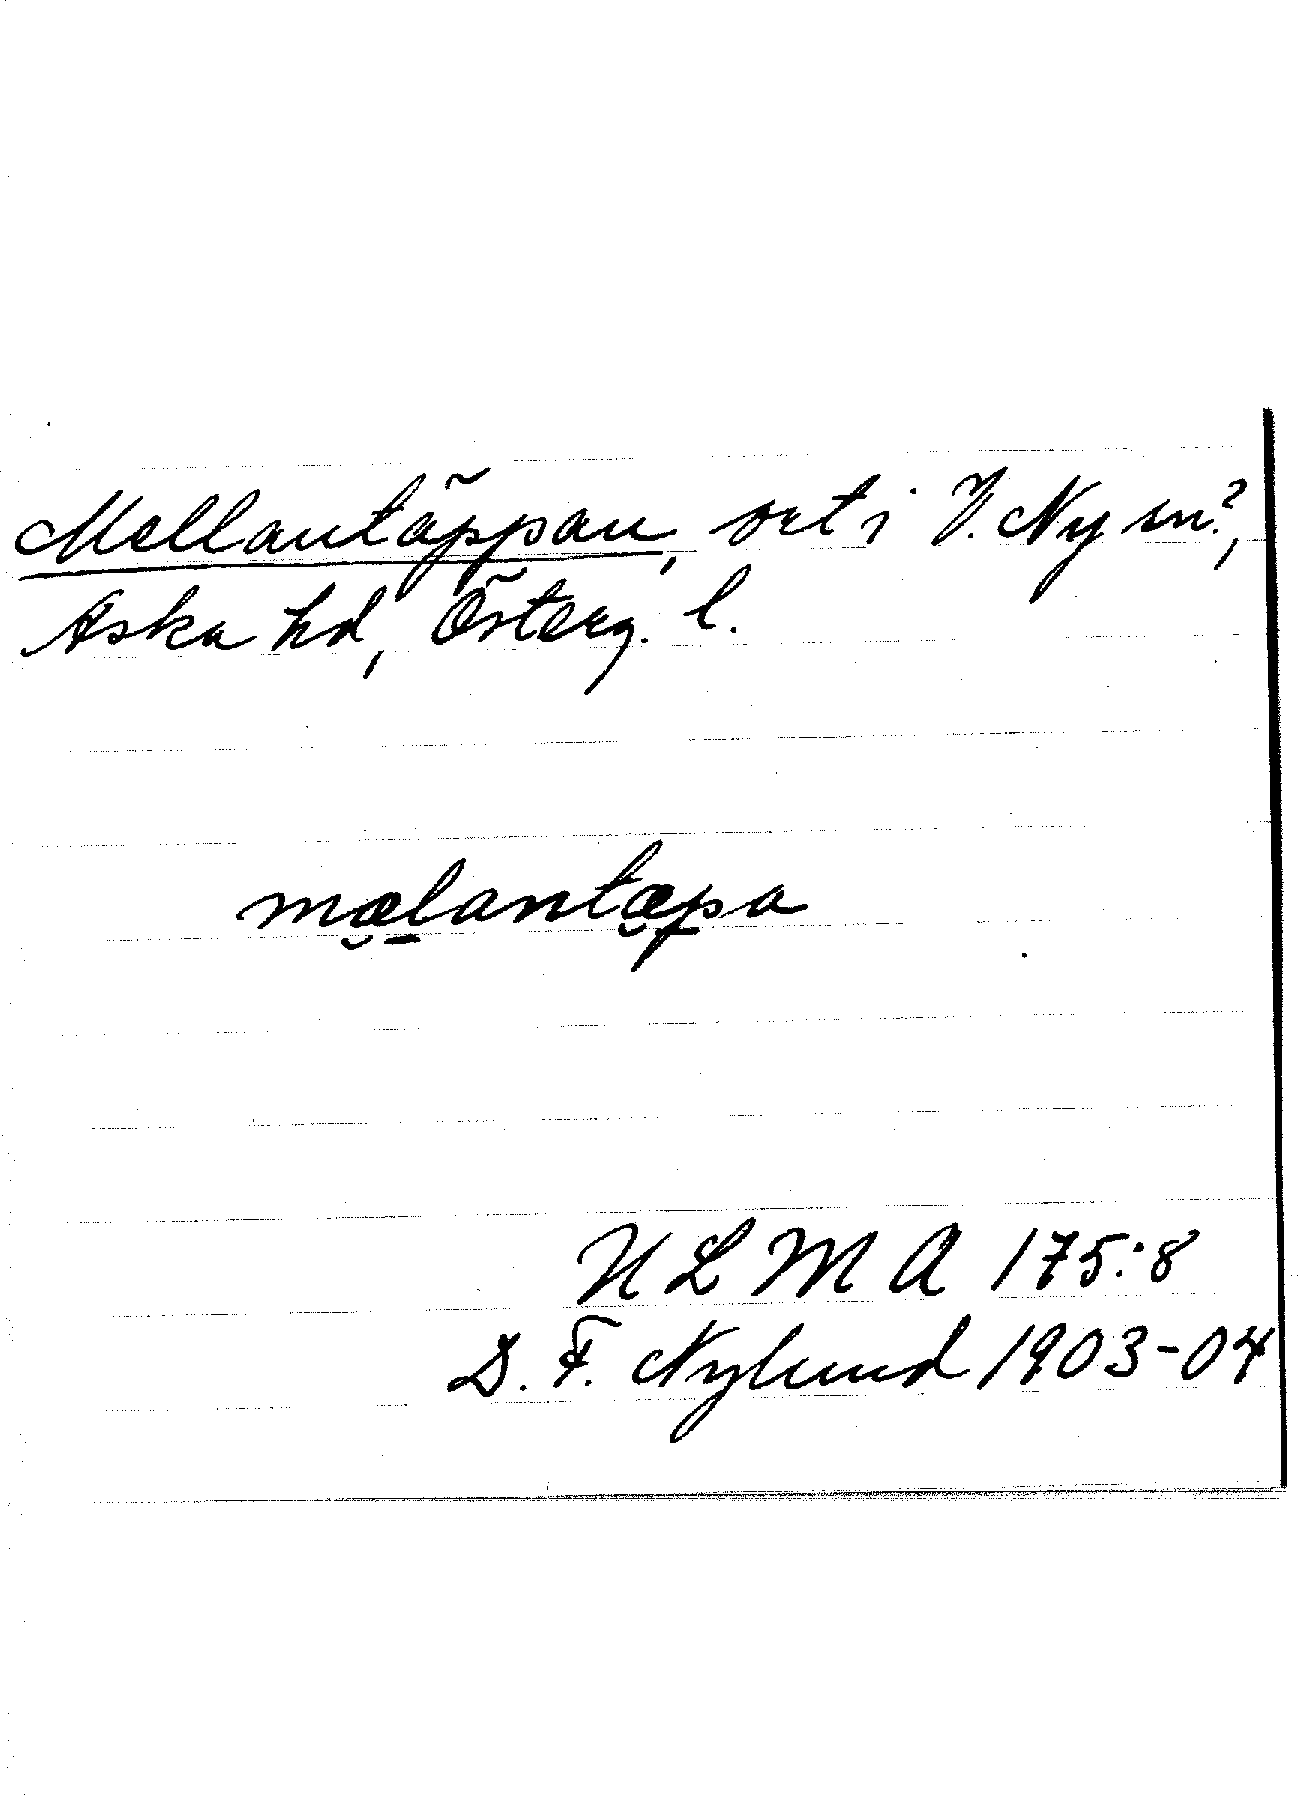 Mellantäppan, ort i V. Ny sn?,
Aska hd, Österg. l.
mælantæpa
ULMA 175:8
D. F. Nylund 1903-04